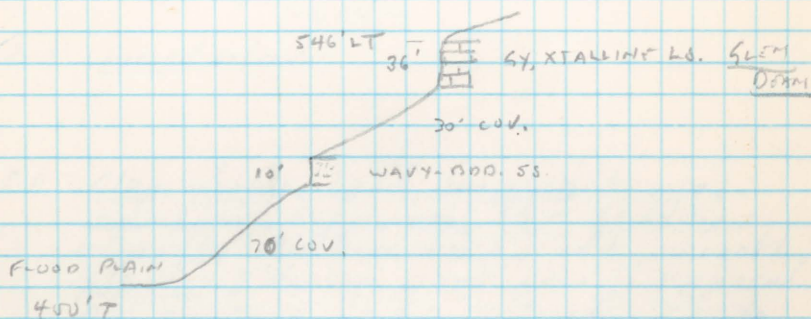 546' LT
36' GY, XTALLINE LS. GLEN
DEAN
30' COV.
10' WAVY-BDD. SS
20' COV.
FLOOD PLAIN
450' T